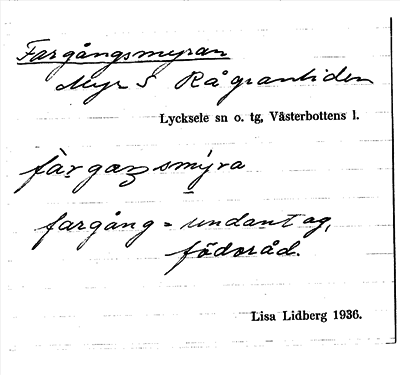 Fargångsmyran
Myr S Rågrantiden
Lycksele sn o. tg, Västerbottens l.
fargångsmyra
fargång = undantag,
födoråd.
Lisa Lidberg 1936.